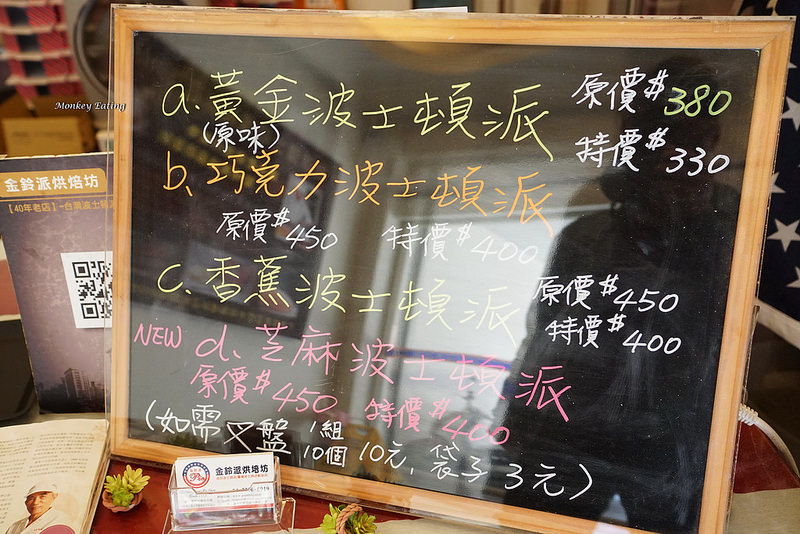 Monkey Eating
a.黃金波士頓派 原價$380
(原味) 特價$330
b.巧克力波士頓派
原價$450 特價$400
c.香蕉波士頓派 原價$450
特價$400
NEW d.芝麻波士頓派
原價$450 特價$400
(如需叉盤1組10個10元,袋子3元)
金鈴派烘焙坊
【40年老店】-台灣波士頓
金鈴派烘焙坊